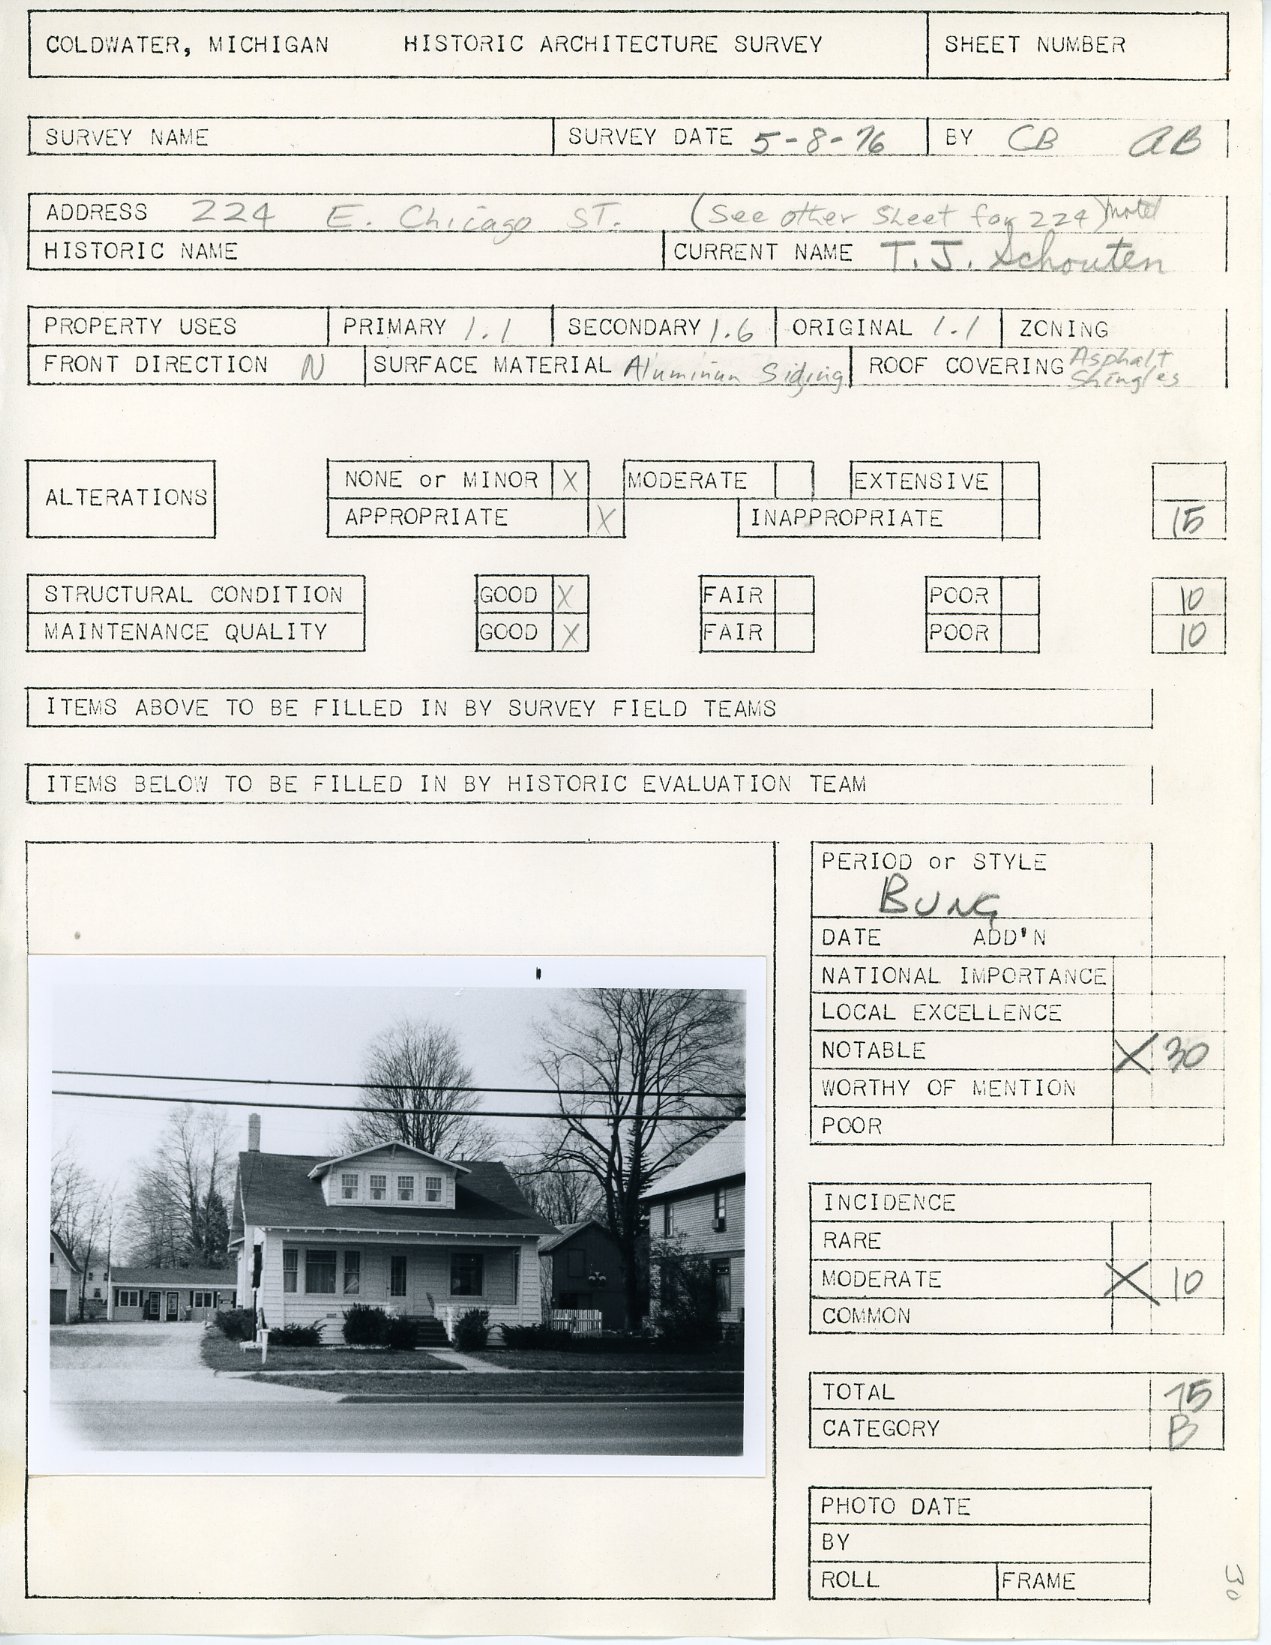 COLDWATER, MICHIGAN HISTORIC ARCHITECTURE SURVEY SHEET NUMBER
SURVEY NAME SURVEY DATE 5-8-76 BY CB AB
ADDRESS 224 E. Chicago ST. (See other Sheet for 224) motel
HISTORIC NAME CURRENT NAME T.J. Schouten
PROPERTY USES PRIMARY 1.1 SECONDARY 1.6 ORIGINAL 1.1 ZONING
FRONT DIRECTION N SURFACE MATERIAL Aluminum Siding ROOF COVERING Asphalt Shingles
ALTERATIONS NONE or MINOR X MODERATE EXTENSIVE
APPROPRIATE X INAPPROPRIATE 15
STRUCTURAL CONDITION GOOD X FAIR POOR 10
MAINTENANCE QUALITY GOOD X FAIR POOR 10
ITEMS ABOVE TO BE FILLED IN BY SURVEY FIELD TEAMS
ITEMS BELOW TO BE FILLED IN BY HISTORIC EVALUATION TEAM
PERIOD or STYLE
BUNG
DATE ADD'N
NATIONAL IMPORTANCE
LOCAL EXCELLENCE
NOTABLE X 30
WORTHY OF MENTION
POOR
INCIDENCE
RARE
MODERATE X 10
COMMON
TOTAL 75
CATEGORY B
PHOTO DATE
BY
ROLL FRAME
30